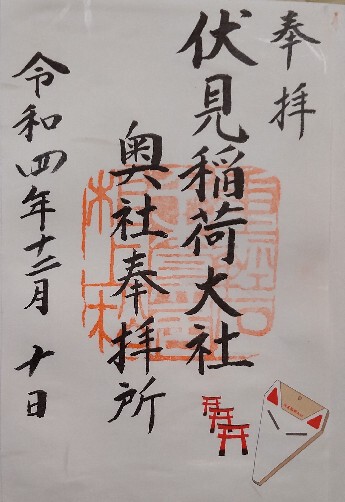 奉拝
伏見稲荷大社
奥社奉拝所
令和四年十二月十日